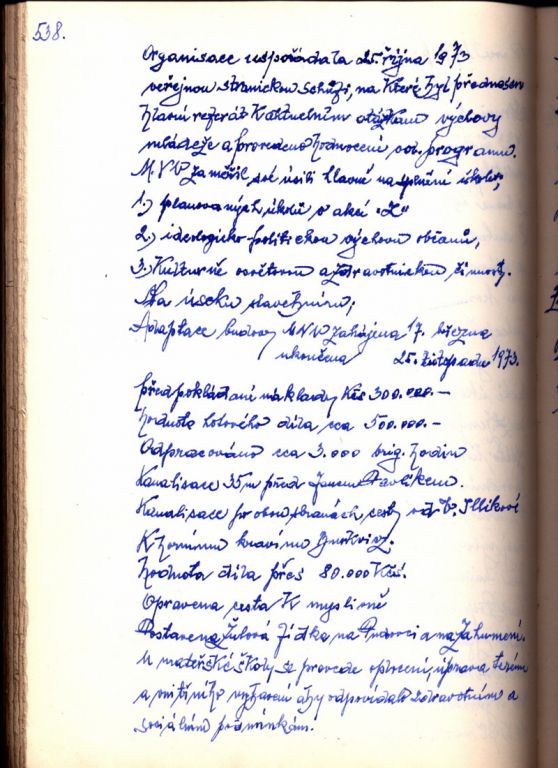 538.
Organisace uspořádala 25. října 1973
veřejnou stranickou schůzi, na které byl přednesen
hlavní referát k aktuelním otázkam výchovy
mládeže a provedeno hodnocení vol. programu.
M.N.V. zaměřil své úsilí hlavně na splnění úkolů,
1.) planovaných úkolů v akci "Z"
2.) ideologicko-politickou výchovu občanů,
3.) Kulturně osvětovou a zdravotnickou činnost.
Na úseku
Adaptace budovy MNV zahájena 17. března
ukončena 25. listopadu 1973.
předpokládané náklady Kčs 300.000.-
hodnota hotového díla cca 500.000.-
Odpracováno cca 3.000 brig. hodin
Kanalisace 35 m před Janem Pavlíkem.
Kanalisace po obou stranách cesty od
K hornímu kravínu
hodnota díla přes 80.000 Kčs.
Opravena cesta K myslivně
Postavena žulová zídka na a na Záhumení.
U mateřské školy se provede oplocení, úprava terénu
a vnitřního vybavení aby odpovídalo zdravotním a
sociálním podmínkám.